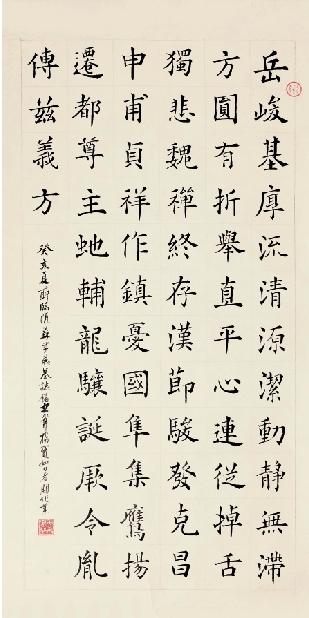 岳峻基厚流清源潔動靜無滯
方圓有折舉直平心連從掉舌
獨悲魏禪終存漢節駿發克昌
申甫貞祥作鎮憂國隼集鷹揚
遷都尊主虵輔龍驤誕厥令胤
傳茲義方
癸亥夏